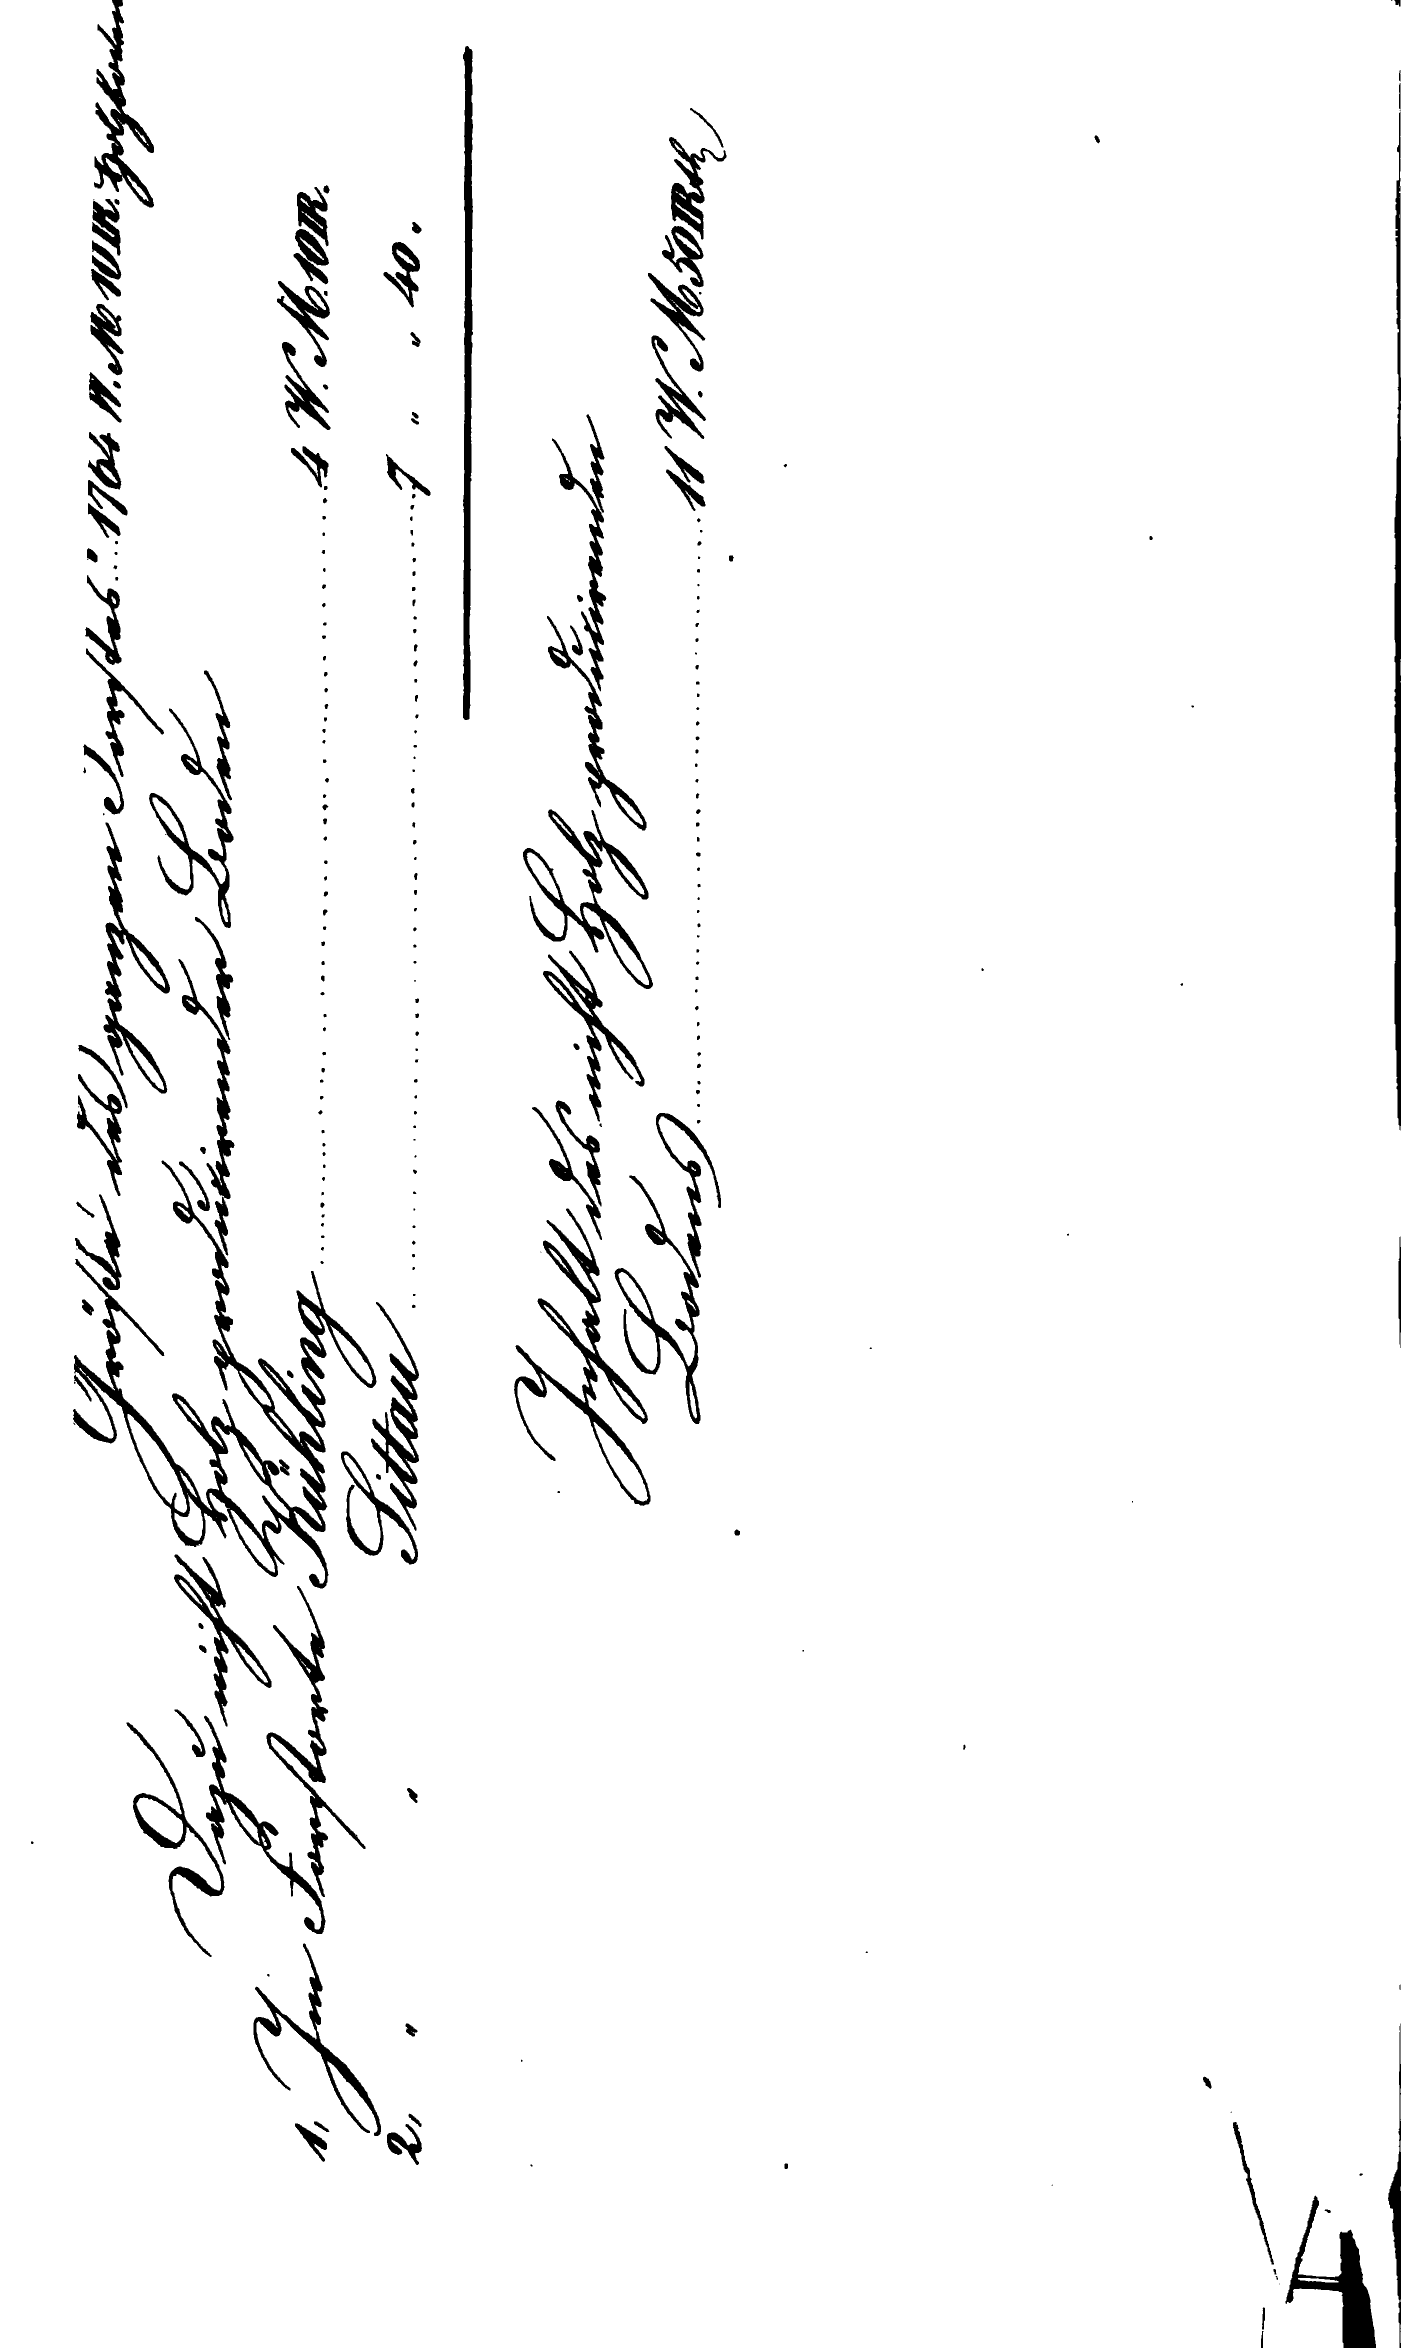 Größe des ganzen Forstes 1764 W. M. 10 IR. Holzboden
Dazu nicht Holz producirender Boden
1, Im Forstorte Kühling 4 W. M. 10 IR.
2, " " Sittau 7 " " 40.
Inhalt des nicht Holz producirenden
Bodens 11 W. M. 50 IR